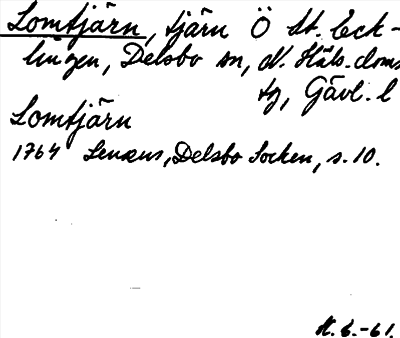 Lomtjärn, tjärn Ö St. Eck-
lingen, Delsbo sn, N. Häls. doms
tg, Gävl. l
Lomtjärn
1764 Lenæus, Delsbo Socken, s. 10.
H. E. -61.